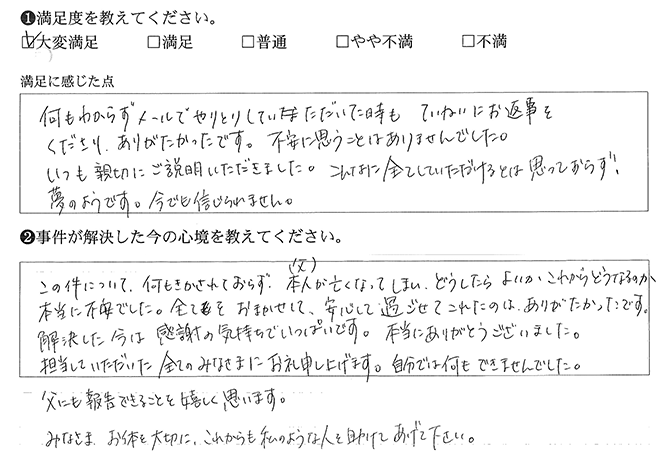 ❶満足度を教えてください。
☑大変満足 □満足 □普通 □やや不満 □不満
満足に感じた点
何もわからずメールでやりとりしていただいた時も ていねいにお返事を
くださり、ありがたかったです。不安に思うことはありませんでした。
いつも親切にご説明いただきました。こんなに全てしていただけるとは思っておらず、
夢のようです。今でも信じられません。
❷事件が解決した今の心境を教えてください。
(父)
この件について、何もきかされておらず、本人が亡くなってしまい、どうしたらよいか、これからどうなるのか、
本当に不安でした。全てを おまかせして、安心して過ごせてこれたのは、ありがたかったです。
解決した今は 感謝の気持ちでいっぱいです。本当にありがとうございました。
担当していただいた 全てのみなさまにお礼申し上げます。自分では何もできませんでした。
父にも報告できることを嬉しく思います。
みなさま、お体を大切に、これからも私のような人を助けてあげて下さい。